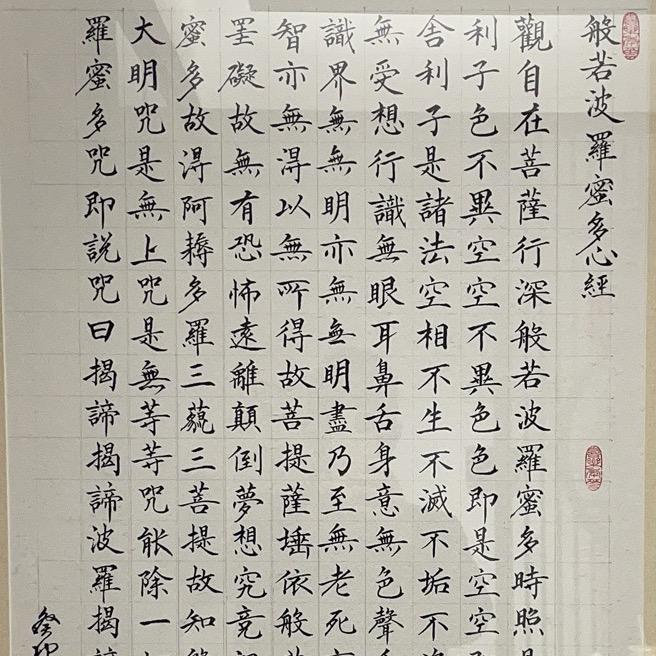 般若波羅蜜多心經
觀自在菩薩行深般若波羅蜜多時照
利子色不異空空不異色色即是空空
舍利子是諸法空相不生不滅不垢不
無受想行識無眼耳鼻舌身意無色聲
識界無無明亦無無明盡乃至無老死
智亦無淂以無所得故菩提薩埵依般
罣礙故無有恐怖遠離顛倒夢想究竟
蜜多故淂阿耨多羅三藐三菩提故知
大明咒是無上咒是無等等咒能除一
羅蜜多咒即說咒曰揭諦揭諦波羅揭
癸卯